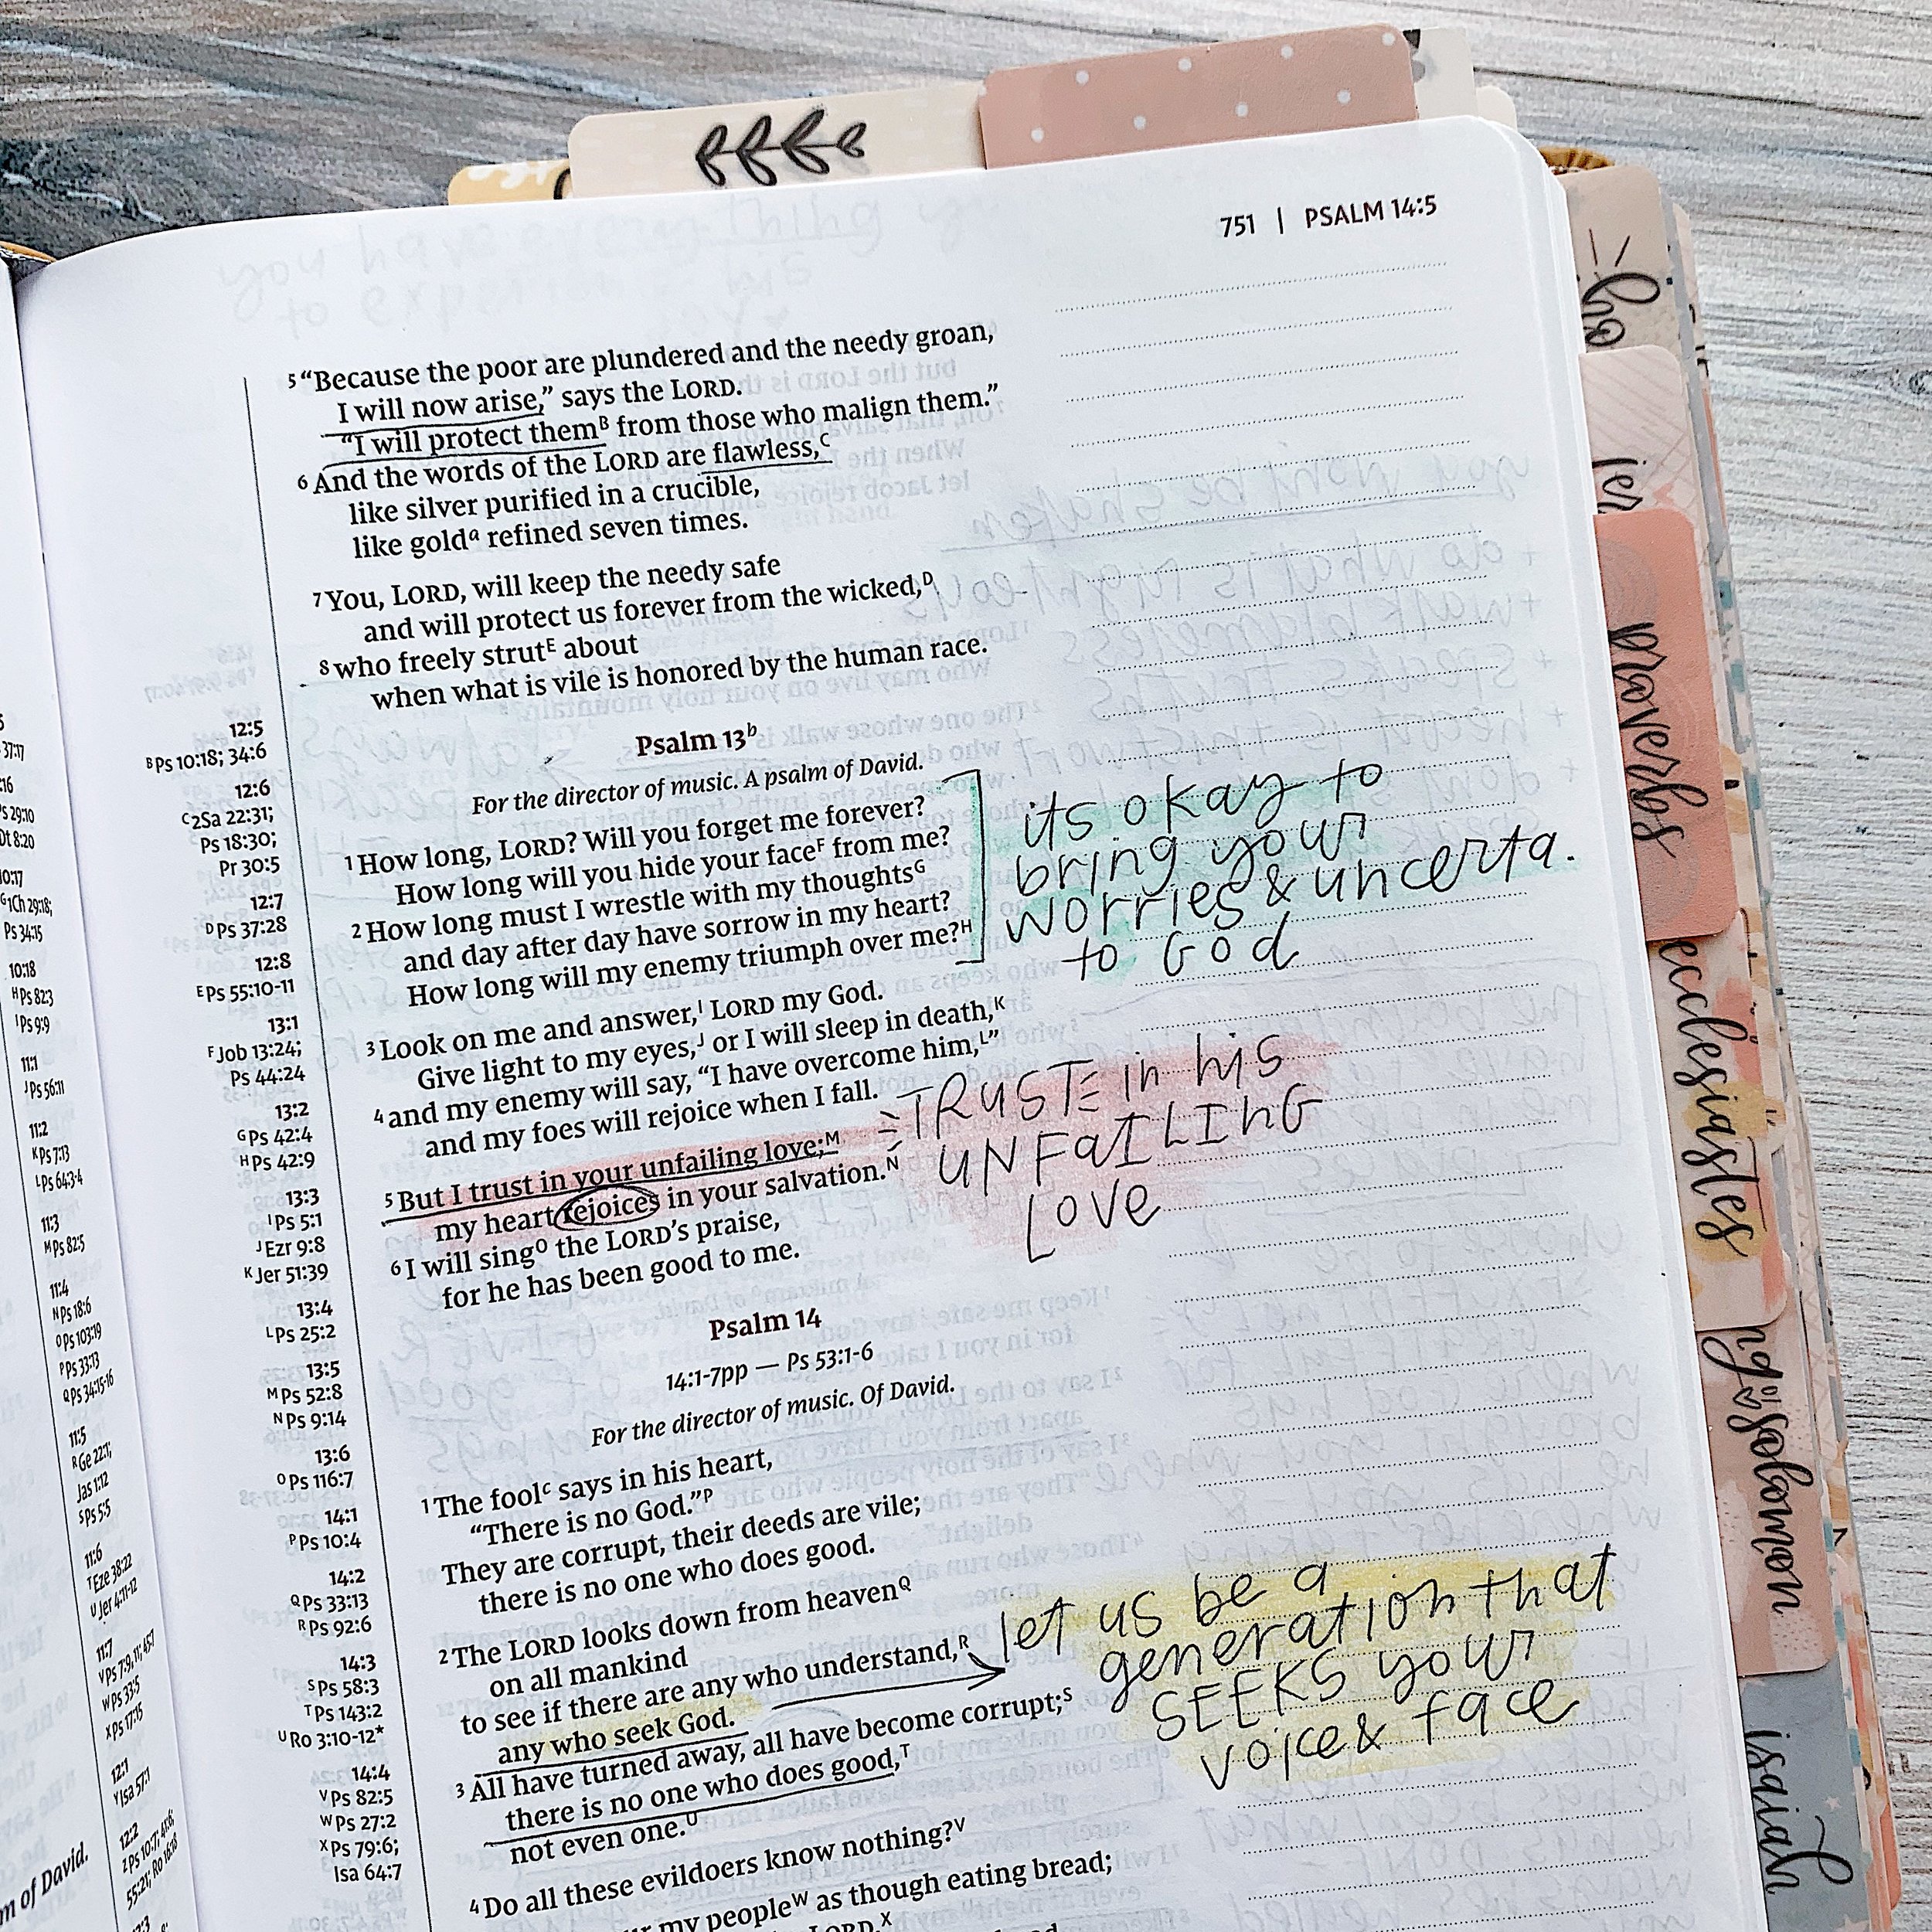 751 | PSALM 14:5
5 “Because the poor are plundered and the needy groan,
I will now arise,” says the LORD.
“I will protect themB from those who malign them.”
6 And the words of the LORD are flawless,C
like silver purified in a crucible,
like golda refined seven times.
7 You, LORD, will keep the needy safe
and will protect us forever from the wicked,D
8 who freely strutE about
when what is vile is honored by the human race.
Psalm 13b
For the director of music. A psalm of David.
1 How long, LORD? Will you forget me forever?
How long will you hide your faceF from me?
2 How long must I wrestle with my thoughtsG
and day after day have sorrow in my heart?
How long will my enemy triumph over me?H
3 Look on me and answer,I LORD my God.
Give light to my eyes,J or I will sleep in death,K
4 and my enemy will say, “I have overcome him,L”
and my foes will rejoice when I fall.
5 But I trust in your unfailing love;M
my heart rejoices in your salvation.N
6 I will singO the LORD’s praise,
for he has been good to me.
Psalm 14
14:1-7pp — Ps 53:1-6
For the director of music. Of David.
1 The foolc says in his heart,
“There is no God.”P
They are corrupt, their deeds are vile;
there is no one who does good.
2 The LORD looks down from heavenQ
on all mankind
to see if there are any who understand,R
any who seek God.
3 All have turned away, all have become corrupt;S
there is no one who does good,T
not even one.U
4 Do all these evildoers know nothing?V
my peopleW as though eating bread;
LORD.X
its okay to
bring your
worries & uncerta.
to God
TRUST in his
UNFaILING
Love
let us be a
generation that
SEEKS your
voice & face
12:5
B Ps 10:18; 34:6
12:6
C 2Sa 22:31;
Ps 18:30;
Pr 30:5
12:7
D Ps 37:28
12:8
E Ps 55:10-11
13:1
F Job 13:24;
Ps 44:24
13:2
G Ps 42:4
H Ps 42:9
13:3
I Ps 5:1
J Ezr 9:8
K Jer 51:39
13:4
L Ps 25:2
13:5
M Ps 52:8
N Ps 9:14
13:6
O Ps 116:7
14:1
P Ps 10:4
14:2
Q Ps 33:13
R Ps 92:6
14:3
S Ps 58:3
T Ps 143:2
U Ro 3:10-12*
14:4
V Ps 82:5
W Ps 27:2
X Ps 79:6;
Isa 64:7
37:17
Ps 29:10
Dt 8:20
10:17
G 1Ch 29:18;
Ps 34:15
10:18
H Ps 82:3
I Ps 9:9
11:1
J Ps 56:11
11:2
K Ps 7:13
L Ps 64:3-4
11:3
M Ps 82:5
11:4
N Ps 18:6
O Ps 103:19
P Ps 33:13
Q Ps 34:15-16
11:5
R Ge 22:1;
Jas 1:12
S Ps 5:5
11:6
T Eze 38:22
U Jer 4:11-12
11:7
V Ps 7:9,11; 45:7
W Ps 33:5
X Ps 17:15
12:1
Y Isa 57:1
12:2
of David.
ho
jer
proverbs
ecclesiastes
ng solomon
isaiah